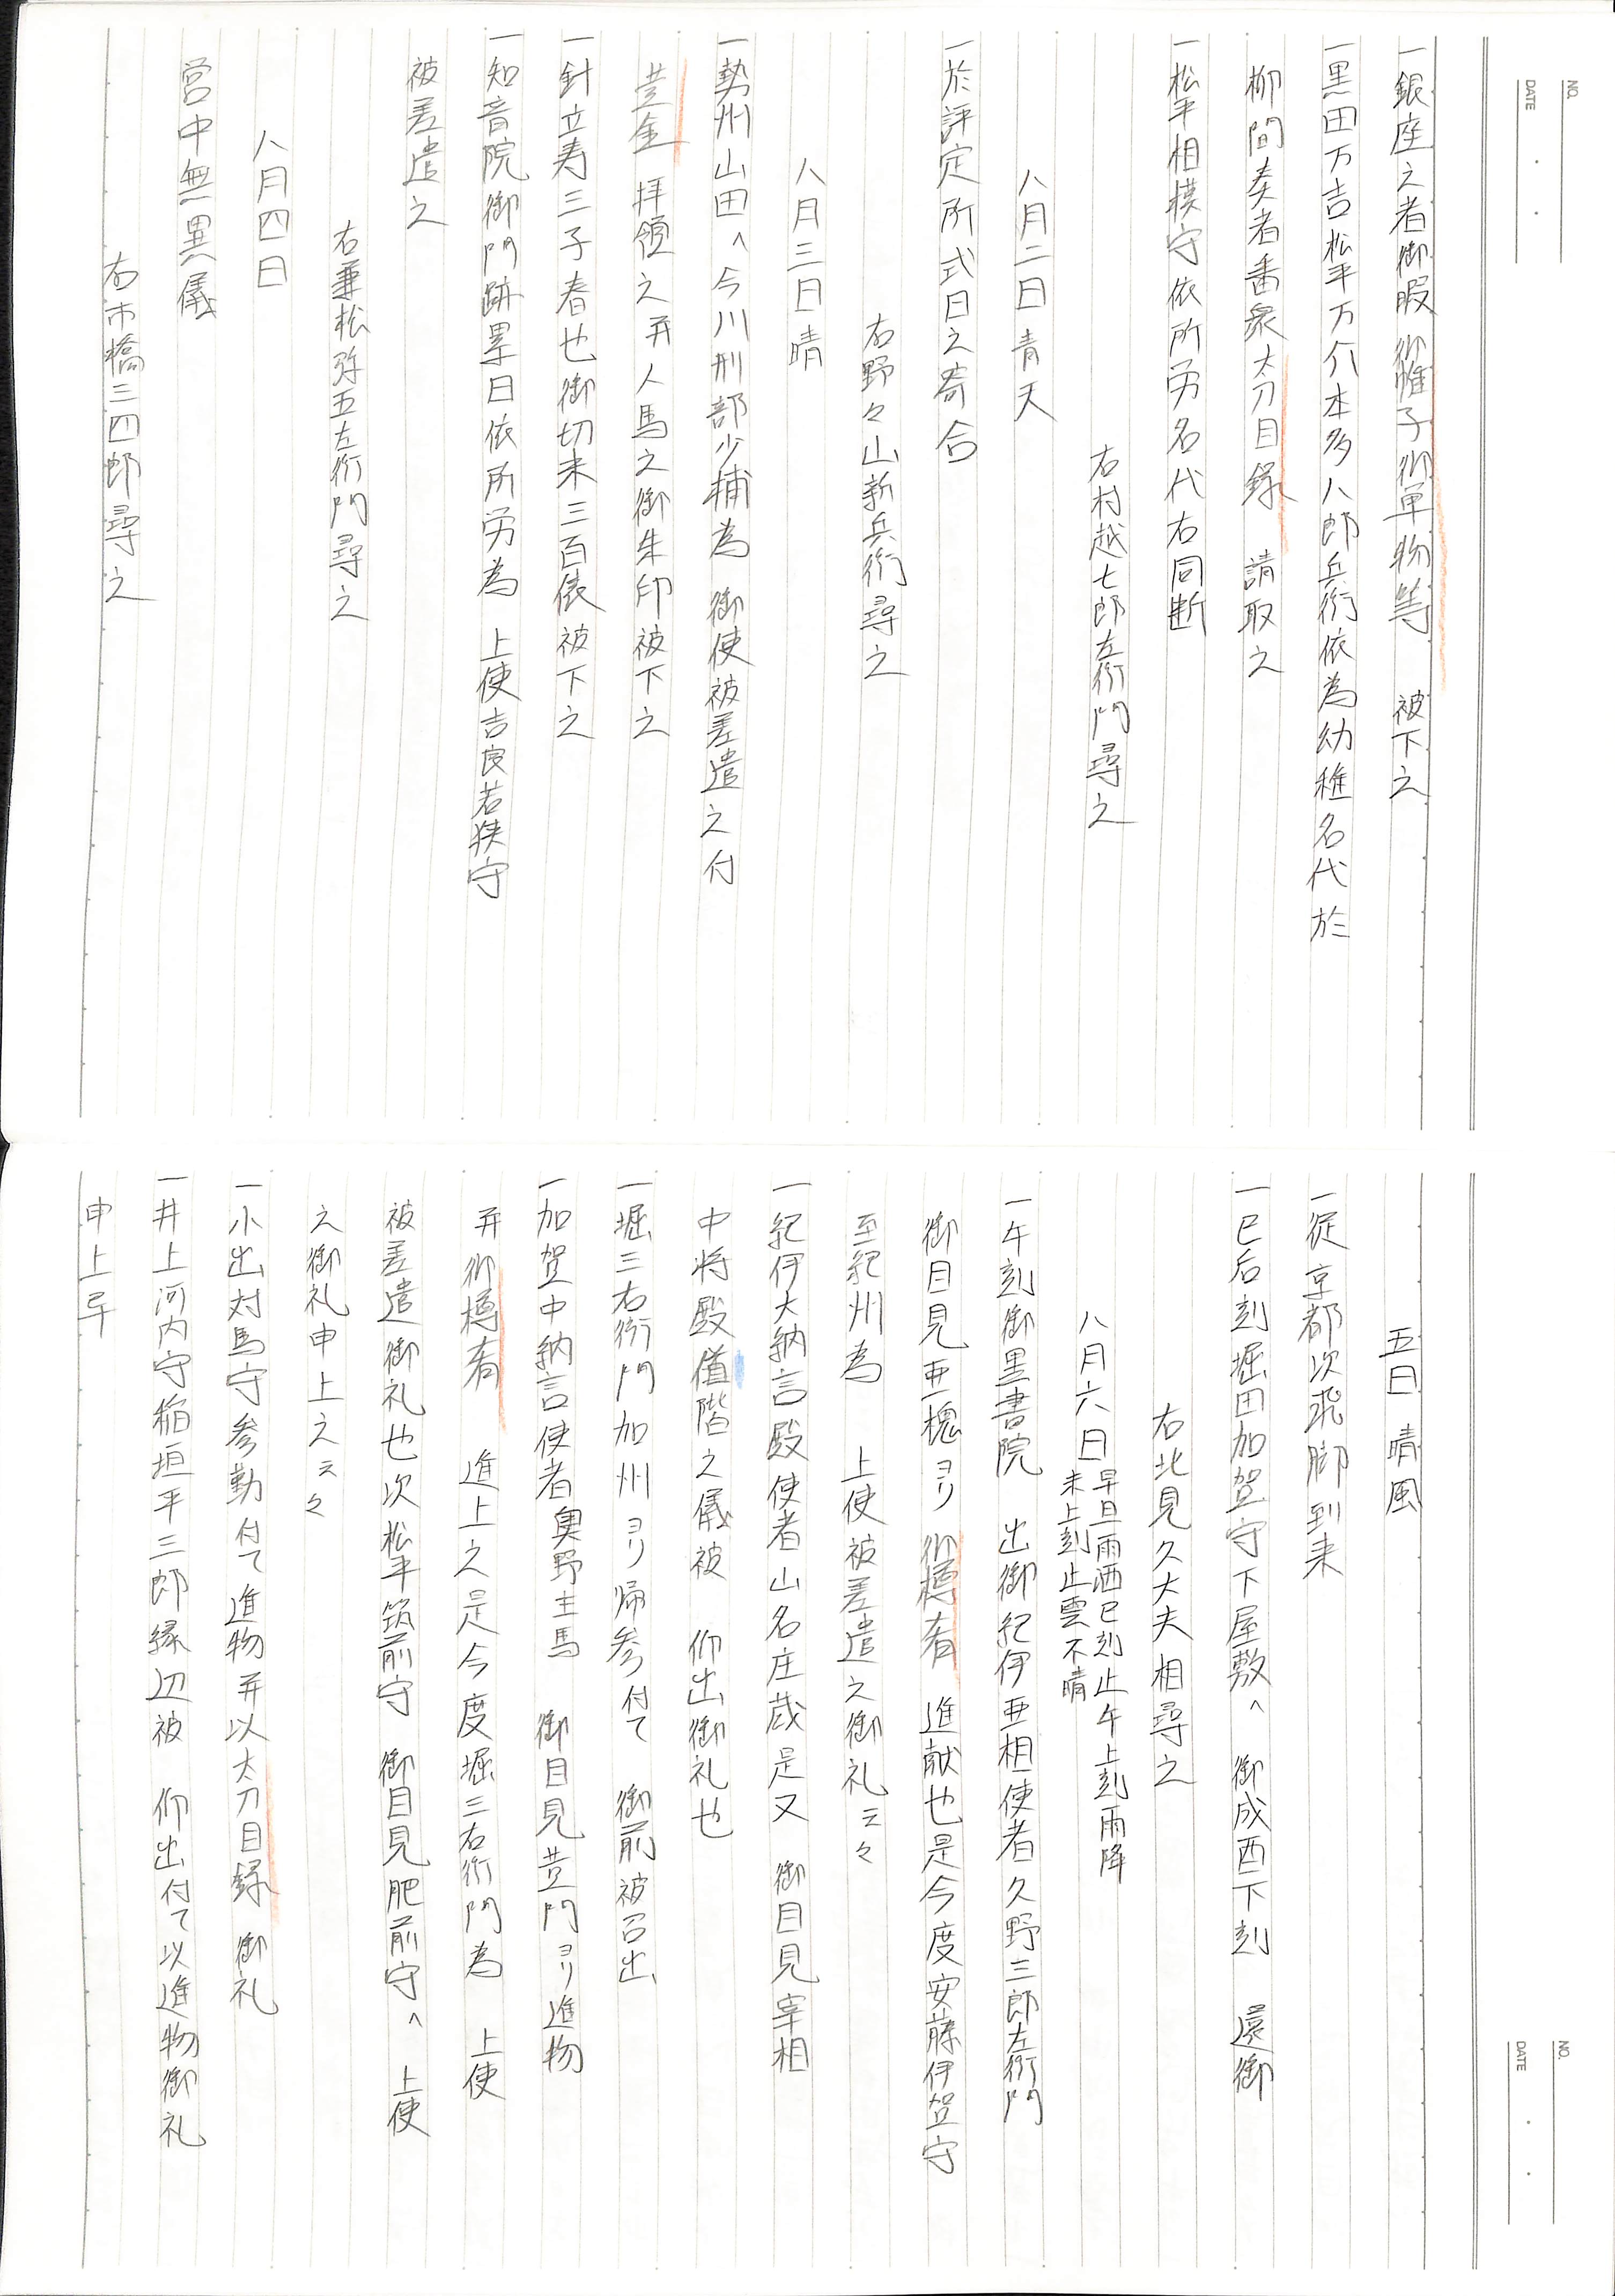 NO.
DATE
一銀座之者御暇御帷子御単物等　被下之
一黒田万吉松平万介本多八郎兵衛依為幼稚名代於
柳間奏者番衆太刀目録　請取之
一松平相模守依所労名代右同断
右村越七郎左衛門尋之
八月二日青天
一於評定所式日之寄合
右野々山新兵衛尋之
八月三日晴
一勢州山田へ今川刑部少輔為　御使被差遣之付
黄金　拝領之并人馬之御朱印被下之
一針立寿三子春也御切米三百俵被下之
一知音院御門跡累日依所労為　上使吉良若狭守
被差遣之
右兼松弥五左衛門尋之
八月四日
営中無異儀
右市橋三四郎尋之
NO.
DATE
五日　晴風
一従京都次飛脚到来
一巳后刻堀田加賀守下屋敷へ　御成酉下刻　還御
右北見久大夫相尋之
八月六日早旦雨洒巳刻止午上刻雨降
未上刻止雲不晴
一午刻御黒書院　出御紀伊亜相使者久野三郎左衛門
御目見亜槐ヨリ　御樽肴　進献也是今度安藤伊賀守
至紀州為　上使被差遣之御礼云々
一紀伊大納言殿使者山名庄蔵是又　御目見宰相
中将殿偱階之儀被　仰出御礼也
一堀三右衛門加州ヨリ帰参付て　御前被召出
一加賀中納言使者奥野主馬　御目見黄門ヨリ進物
并御樽肴　進上之是今度堀三右衛門為　上使
被差遣御礼也次松平筑前守　御目見肥前守へ　上使
之御礼申上之云々
一小出対馬守参勤付て進物并以太刀目録　御礼
一井上河内守稲垣平三郎縁辺被　仰出付て以進物御礼
申上早